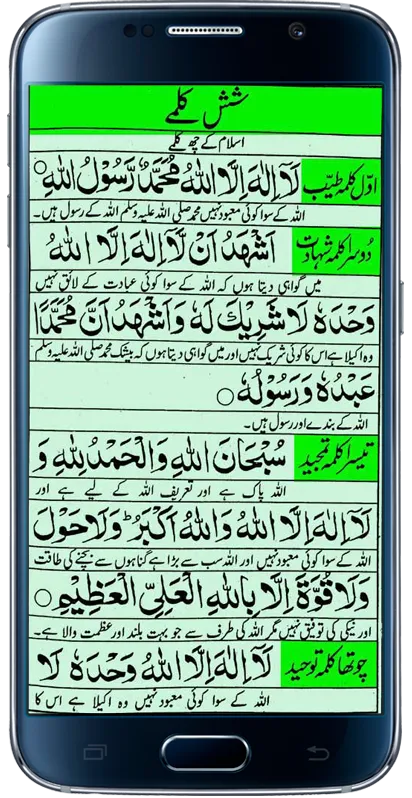 شش کلمے
اسلام کے چھ کلمے
اوّل کلمہ طیّب لَآ اِلٰهَ اِلَّا اللهُ مُحَمَّدٌ رَّسُوْلُ اللهِ ○
اللہ کے سوا کوئی معبود نہیں محمد صلی اللہ علیہ وسلم اللہ کے رسول ہیں۔
دُوسرا کلمہ شہادت اَشْهَدُ اَنْ لَّآ اِلٰهَ اِلَّا اللهُ
میں گواہی دیتا ہوں کہ اللہ کے سوا کوئی عبادت کے لائق نہیں
وَحْدَهٗ لَا شَرِيْكَ لَهٗ وَاَشْهَدُ اَنَّ مُحَمَّدًا
وہ اکیلا ہے اس کا کوئی شریک نہیں اور میں گواہی دیتا ہوں کہ بیشک محمد صلی اللہ علیہ وسلم
عَبْدُهٗ وَرَسُوْلُهٗ ○
اللہ کے بندے اور رسول ہیں۔
تیسرا کلمہ تمجید سُبْحَانَ اللهِ وَالْحَمْدُ لِلّٰهِ وَ
اللہ پاک ہے اور تعریف اللہ کے لیے ہے اور
لَآ اِلٰهَ اِلَّا اللهُ وَاللهُ اَكْبَرُ ؕ وَلَا حَوْلَ
اللہ کے سوا کوئی معبود نہیں اور اللہ سب سے بڑا ہے گناہوں سے بچنے کی طاقت
وَلَا قُوَّةَ اِلَّا بِاللهِ الْعَلِيِّ الْعَظِيْمِ ○
اور نیکی کی توفیق نہیں مگر اللہ کی طرف سے جو بہت بلند اور عظمت والا ہے۔
چوتھا کلمہ توحید لَآ اِلٰهَ اِلَّا اللهُ وَحْدَهٗ لَا
اللہ کے سوا کوئی معبود نہیں وہ اکیلا ہے اس کا